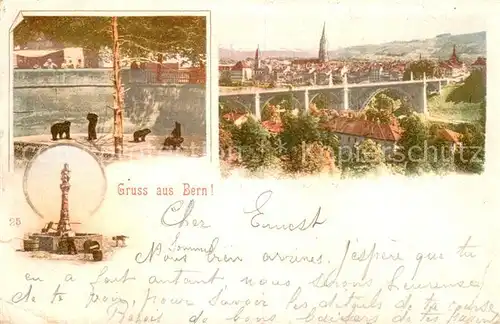 Gruss aus Bern!
25
Cher Ernest
Nous sommes bien arrivés. J'espère que tu
en a fait autant nous serons heureuse
de te pour savoir les détails de ta course
Reçois de bons baisers de tes